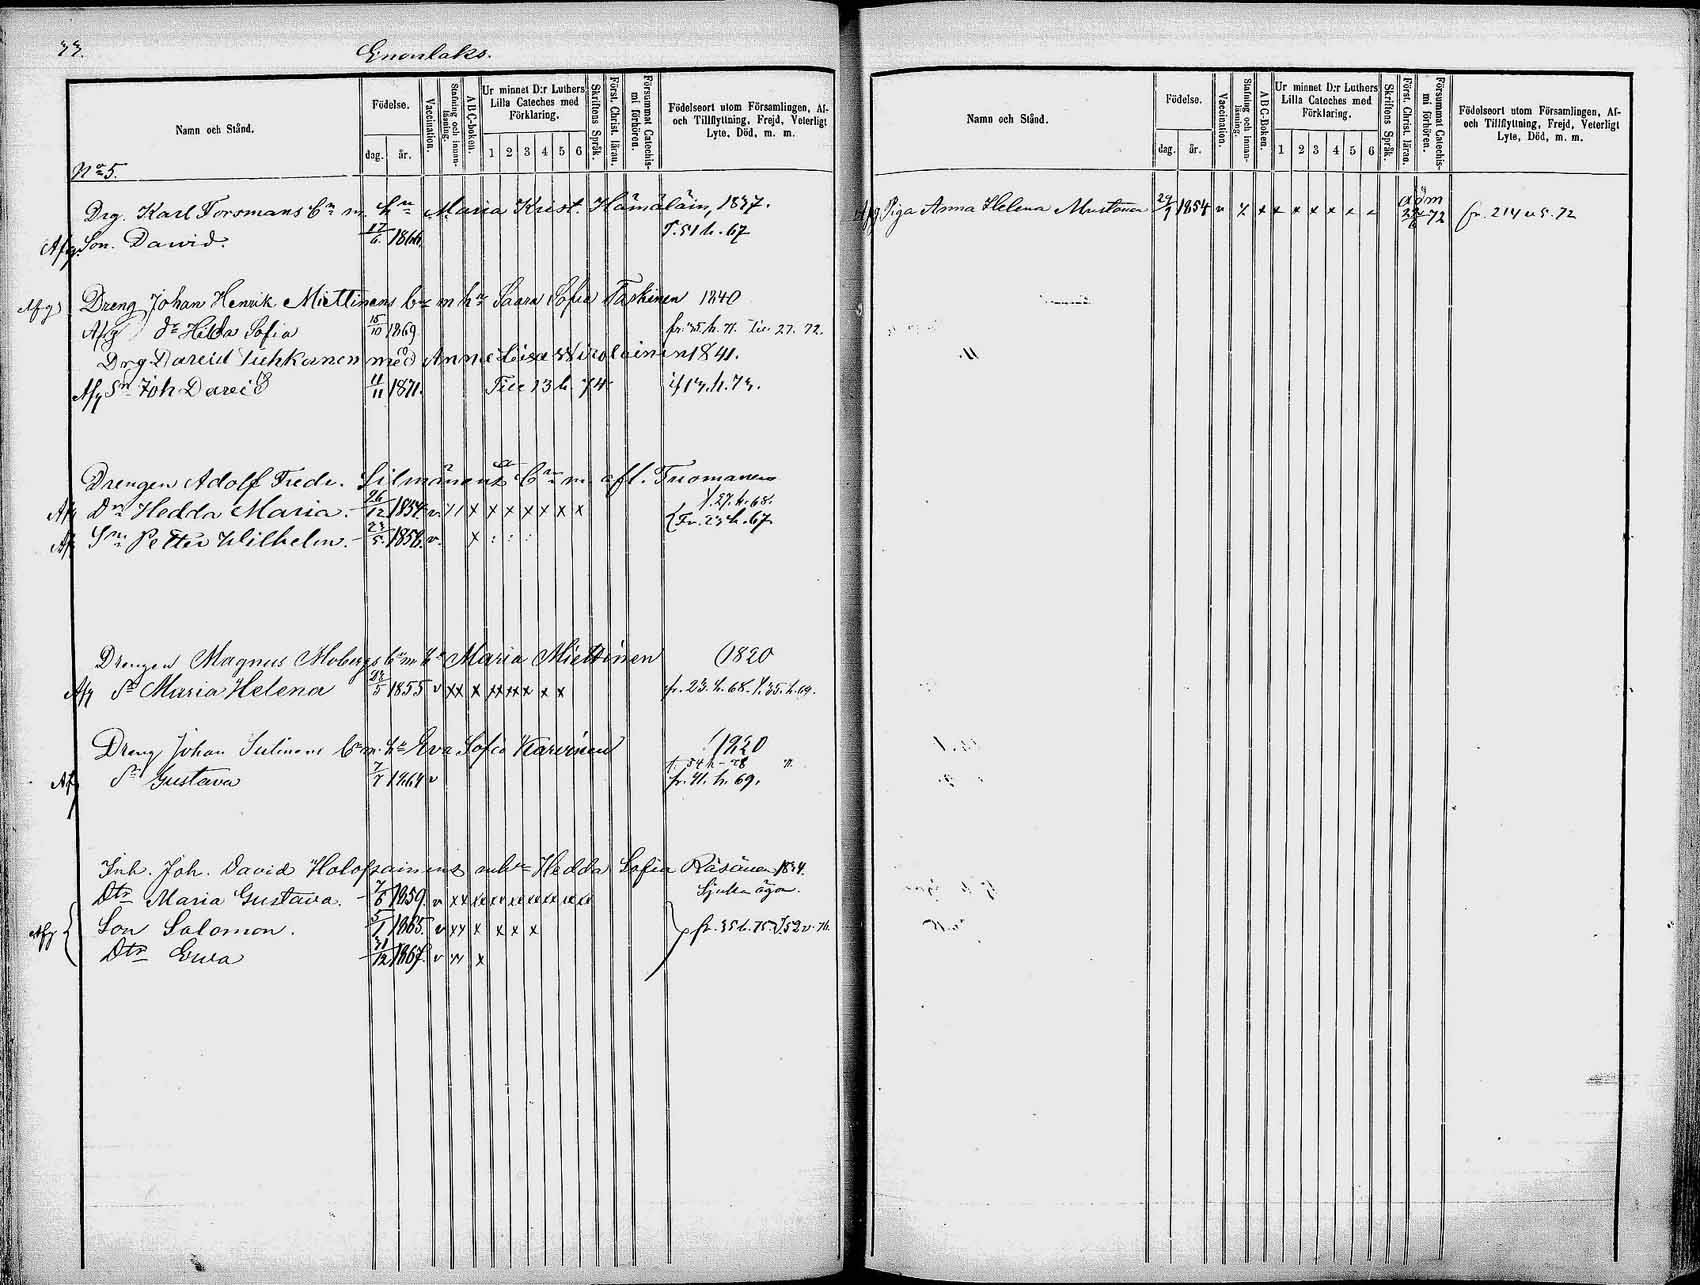 33.
Enonlaks.
Namn och Stånd.
Födelse.
dag.
år.
Vaccination.
Stafning och innanläsning.
A B C-boken.
Ur minnet D:r Luthers Lilla Cateches med Förklaring.
1 2 3 4 5 6
Skriftens Språk.
Först. Christ. läran.
Försummat Catechismi förhören.
Födelseort utom Församlingen, Af- och Tillflyttning, Frejd, Veterligt Lyte, Död, m. m.
No 5.
Drg. Karl Forsmans bn m. hu Maria Krist. Hämäläin, 1837.
Afg. Son. David. 17/6 1866. T. 51 h. 67
Afg Dreng Johan Henrik Miettinens bn m hu Saara Sofia Taskinen 1840
Afg dr Hilda Sofia 15/10 1869 fr. 35 h. 71. 27. 72.
Drg. David med Anna Lisa 1841.
Afg Sn Joh David 11/11 1871. 13 h 74 13. h. 73.
Drengen Adolf Fredr. bn m. afl. Tuomanen
Afg Dr Hedda Maria. 26/12 1854. v. 11 x x x x x x x f. 27. h. 68.
Afg Sn Petter Wilhelm. 23/5. 1856. v. x : : : Fr. 23 h. 67
Drengen Magnus Mobergs bn m hu Maria Miettinen 1820
Afg Dr Maria Helena 23/5 1855 v xx x xx xx x x x fr. 23. h. 68. f. 35. h. 69.
Dreng Johan bn m. hu Eva Sofia Karvinen 1820
f. 54 h - 78
Afg Dr Gustava 7/7 1864 v fr. 41. h. 69.
Inh. Joh. David Holopainens m hu Hedda Sofia Räsänen 1834.
Dtr Maria Gustava. 7/6 1859. v xx xx xx xx xx xx xx Sjuka ögon.
Afg Son Salomon. 5/1 1865. v xx x x x x fr. 35 h. 75. f. 52 v. 76.
Dtr Ewa 31/12 1867. v xx x
Namn och Stånd.
Födelse.
dag.
år.
Vaccination.
Stafning och innanläsning.
A B C-Boken.
Ur minnet D:r Luthers Lilla Cateches med Förklaring.
1 2 3 4 5 6
Skriftens Språk.
Först. Christ. läran.
Försummat Catechismi förhören.
Födelseort utom Församlingen, Af- och Tillflyttning, Frejd, Veterligt Lyte, Död, m. m.
Afg Piga Anna Helena Mustonen 24/7 1854 v x x x x x x x x adm 72 fr. 214 u. S. 72